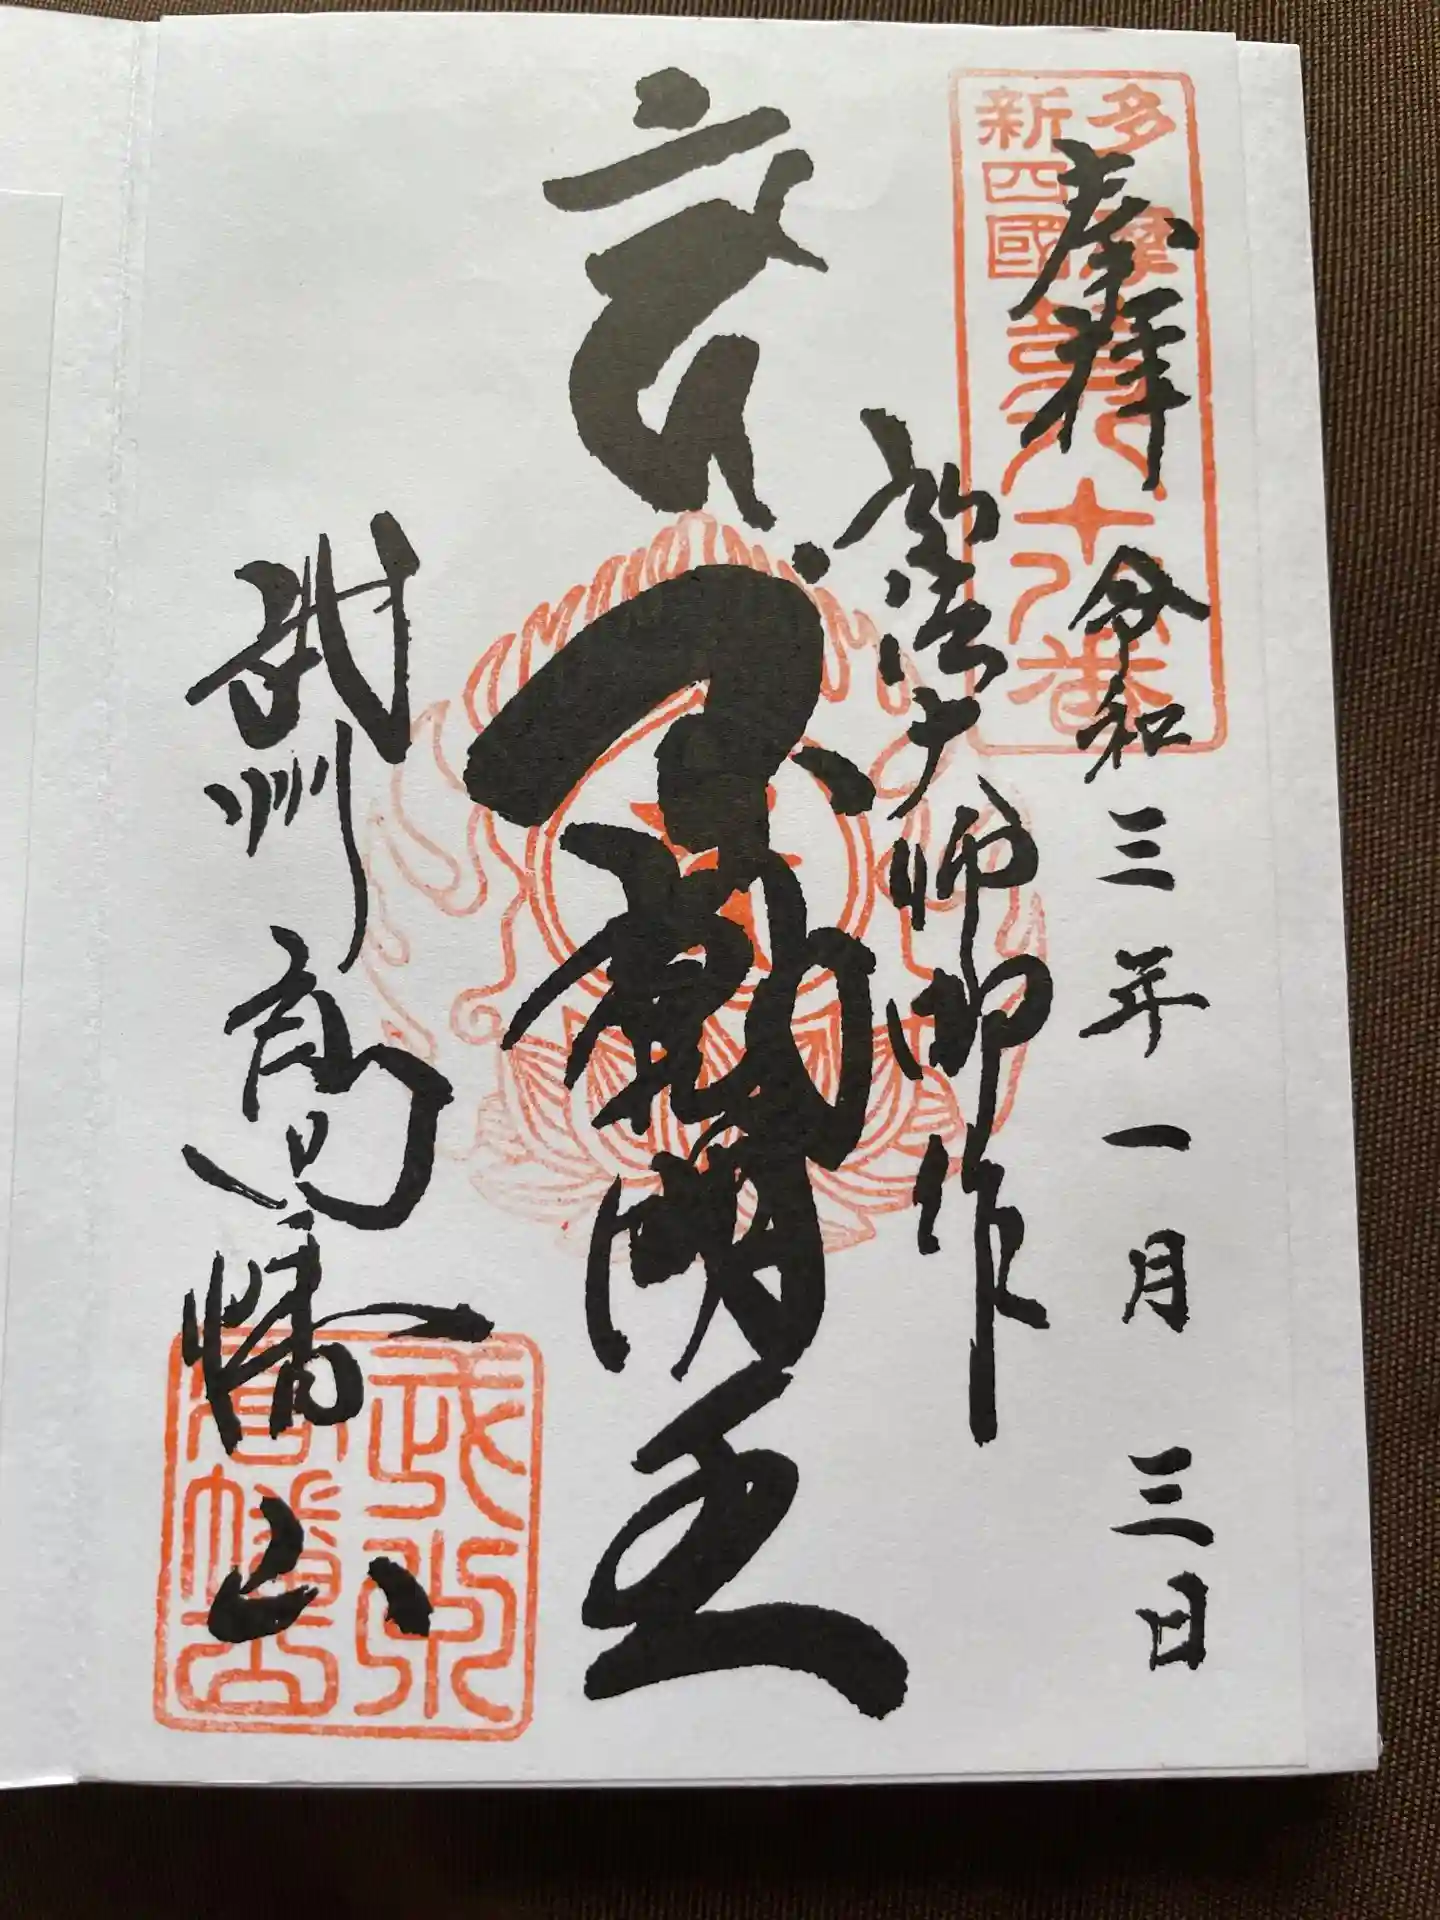 多摩
新四國
第八十八番
奉拝 令和三年一月三日
弘法大師御作
不動明王
武州高幡山
武州
高幡山